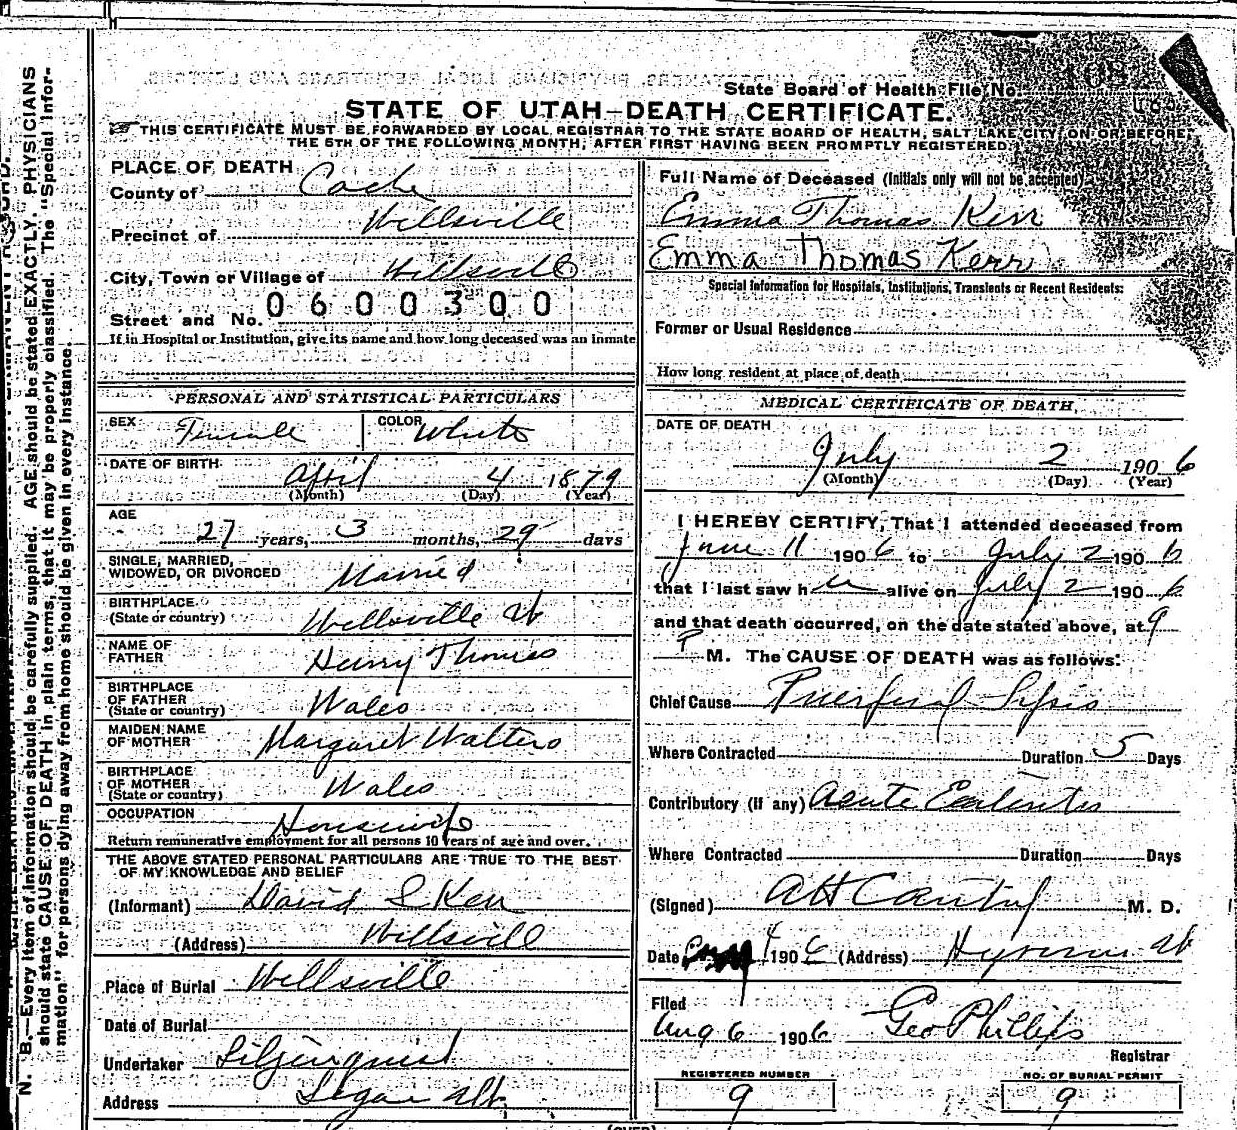 State Board of Health File No.
STATE OF UTAH—DEATH CERTIFICATE.
THIS CERTIFICATE MUST BE FORWARDED BY LOCAL REGISTRAR TO THE STATE BOARD OF HEALTH, SALT LAKE CITY, ON OR BEFORE
THE 5TH OF THE FOLLOWING MONTH, AFTER FIRST HAVING BEEN PROMPTLY REGISTERED.
PLACE OF DEATH
County of Cache
Precinct of Wellsville
City, Town or Village of Wellsville
Street and No. 0600300
If in Hospital or Institution, give its name and how long deceased was an inmate
PERSONAL AND STATISTICAL PARTICULARS
SEX Female COLOR White
DATE OF BIRTH
April 4 1879
(Month) (Day) (Year)
AGE
27 years, 3 months, 29 days
SINGLE, MARRIED,
WIDOWED, OR DIVORCED Married
BIRTHPLACE
(State or country) Wellsville Ut
NAME OF
FATHER Henry Thomas
BIRTHPLACE
OF FATHER
(State or country) Wales
MAIDEN NAME
OF MOTHER Margaret Walters
BIRTHPLACE
OF MOTHER
(State or country) Wales
OCCUPATION Housewife
Return remunerative employment for all persons 10 years of age and over.
THE ABOVE STATED PERSONAL PARTICULARS ARE TRUE TO THE BEST
OF MY KNOWLEDGE AND BELIEF
(Informant) David S Kerr
(Address) Wellsvill
Place of Burial Wellsville
Date of Burial
Undertaker Liljenquist
Address Logan Ut.
Full Name of Deceased (Initials only will not be accepted)
Emma Thomas Kerr
Emma Thomas Kerr
Special Information for Hospitals, Institutions, Transients or Recent Residents:
Former or Usual Residence
How long resident at place of death
MEDICAL CERTIFICATE OF DEATH
DATE OF DEATH
July 2 1906
(Month) (Day) (Year)
I HEREBY CERTIFY, That I attended deceased from
June 11 1906 to July 2 1906
that I last saw her alive on July 2 1906
and that death occurred, on the date stated above, at 9
P M. The CAUSE OF DEATH was as follows:
Chief Cause Puerperal Sepsis
Where Contracted Duration 5 Days
Contributory (if any) Acute
Where Contracted Duration Days
(Signed) M. D.
Date 4 1906 (Address) Hyrum Ut
Filed
Aug 6 1906 Geo Phillips
Registrar
REGISTERED NUMBER
9
NO. OF BURIAL PERMIT
9
(OVER)
N. B.—Every item of information should be carefully supplied. AGE should be stated EXACTLY. PHYSICIANS
should state CAUSE OF DEATH in plain terms, that it may be properly classified. The "Special Infor-
mation" for persons dying away from home should be given in every instance.